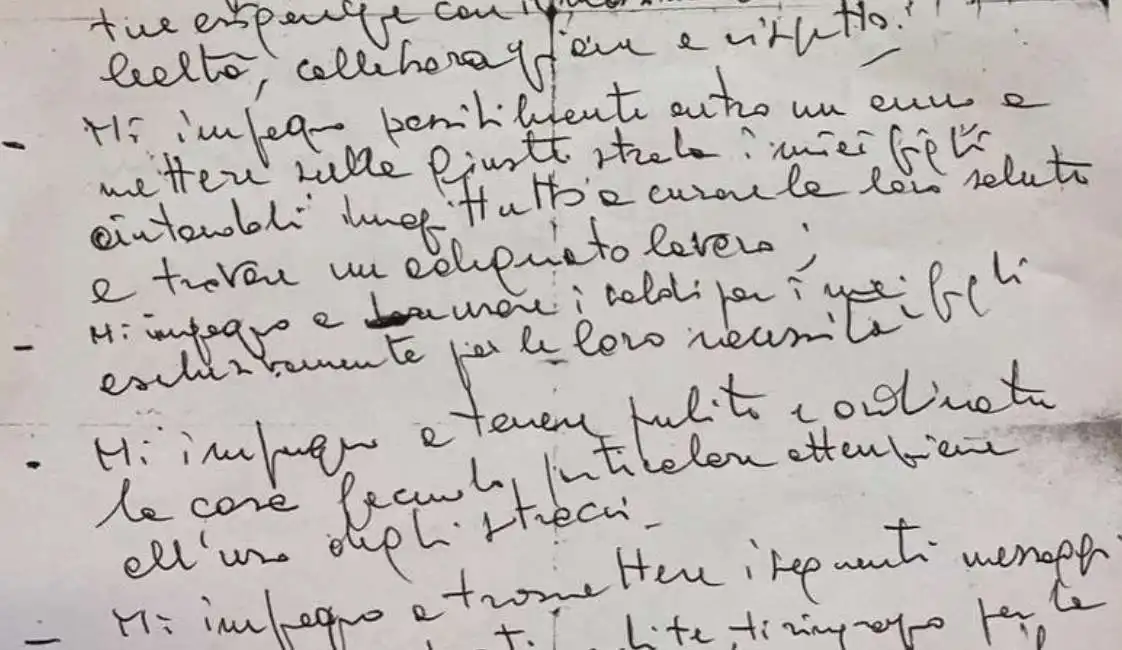 lealtà, collaborazione e rispetto!
- Mi impegno possibilmente entro un anno a
mettere sulla giusta strada i miei figli
aiutandoli innanzitutto a curare la loro salute
e trovare un adeguato lavoro;
- Mi impegno a usare i soldi per i miei figli
esclusivamente per le loro necessità
- Mi impegno a tenere pulita e ordinata
la casa facendo particolare attenzione
all'uso degli stracci.
- Mi impegno a trasmettere i seguenti messaggi
ti ringrazio per la